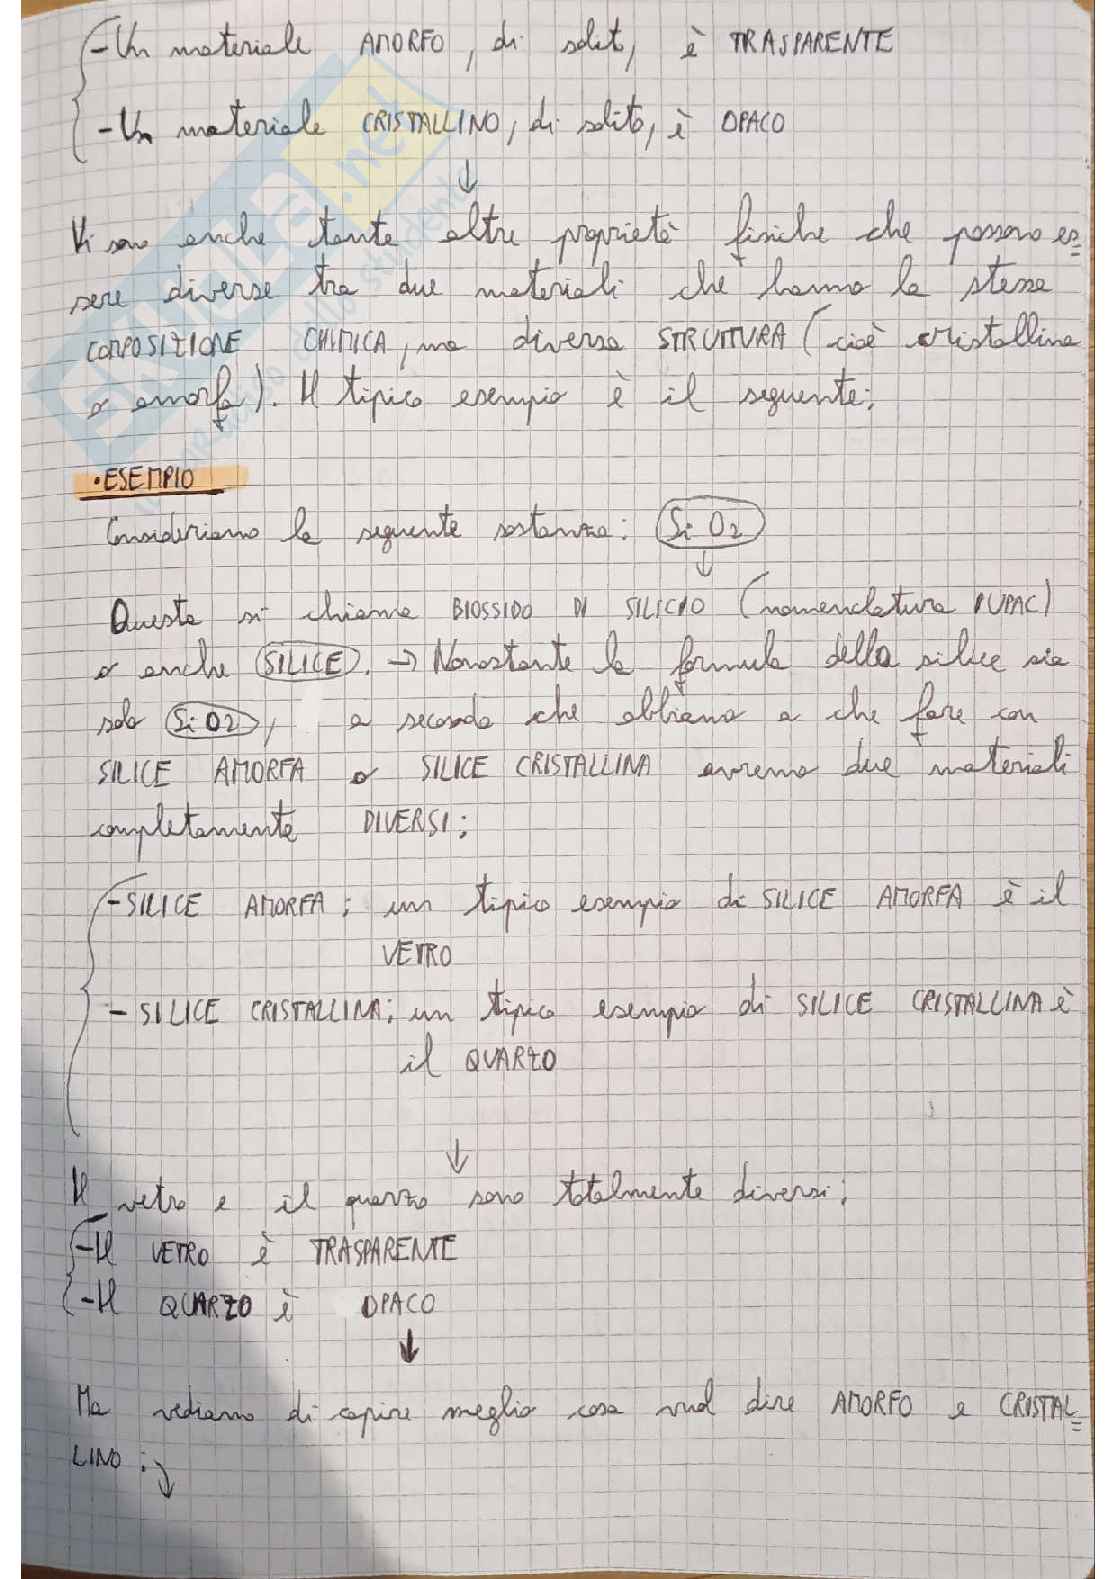 - Un materiale AMORFO, di solito, è TRASPARENTE
- Un materiale CRISTALLINO, di solito, è OPACO
↓
Vi sono anche tante altre proprietà fisiche che possono es=
sere diverse tra due materiali che hanno la stessa
COMPOSIZIONE CHIMICA, ma diversa STRUTTURA (cioè cristallina
o amorfa). Il tipico esempio è il seguente:
• ESEMPIO
Consideriamo la seguente sostanza: SiO2
↓
Questa si chiama BIOSSIDO DI SILICIO (nomenclatura IUPAC)
o anche SILICE. → Nonostante la formula della silice sia
solo SiO2, a seconda che abbiamo a che fare con
SILICE AMORFA o SILICE CRISTALLINA avremo due materiali
completamente DIVERSI:
- SILICE AMORFA: un tipico esempio di SILICE AMORFA è il
VETRO
- SILICE CRISTALLINA: un tipico esempio di SILICE CRISTALLINA è
il QUARZO
↓
Il vetro e il quarzo sono totalmente diversi:
- Il VETRO è TRASPARENTE
- Il QUARZO è OPACO
↓
Ma vediamo di capire meglio cosa vuol dire AMORFO e CRISTAL=
LINO:↓